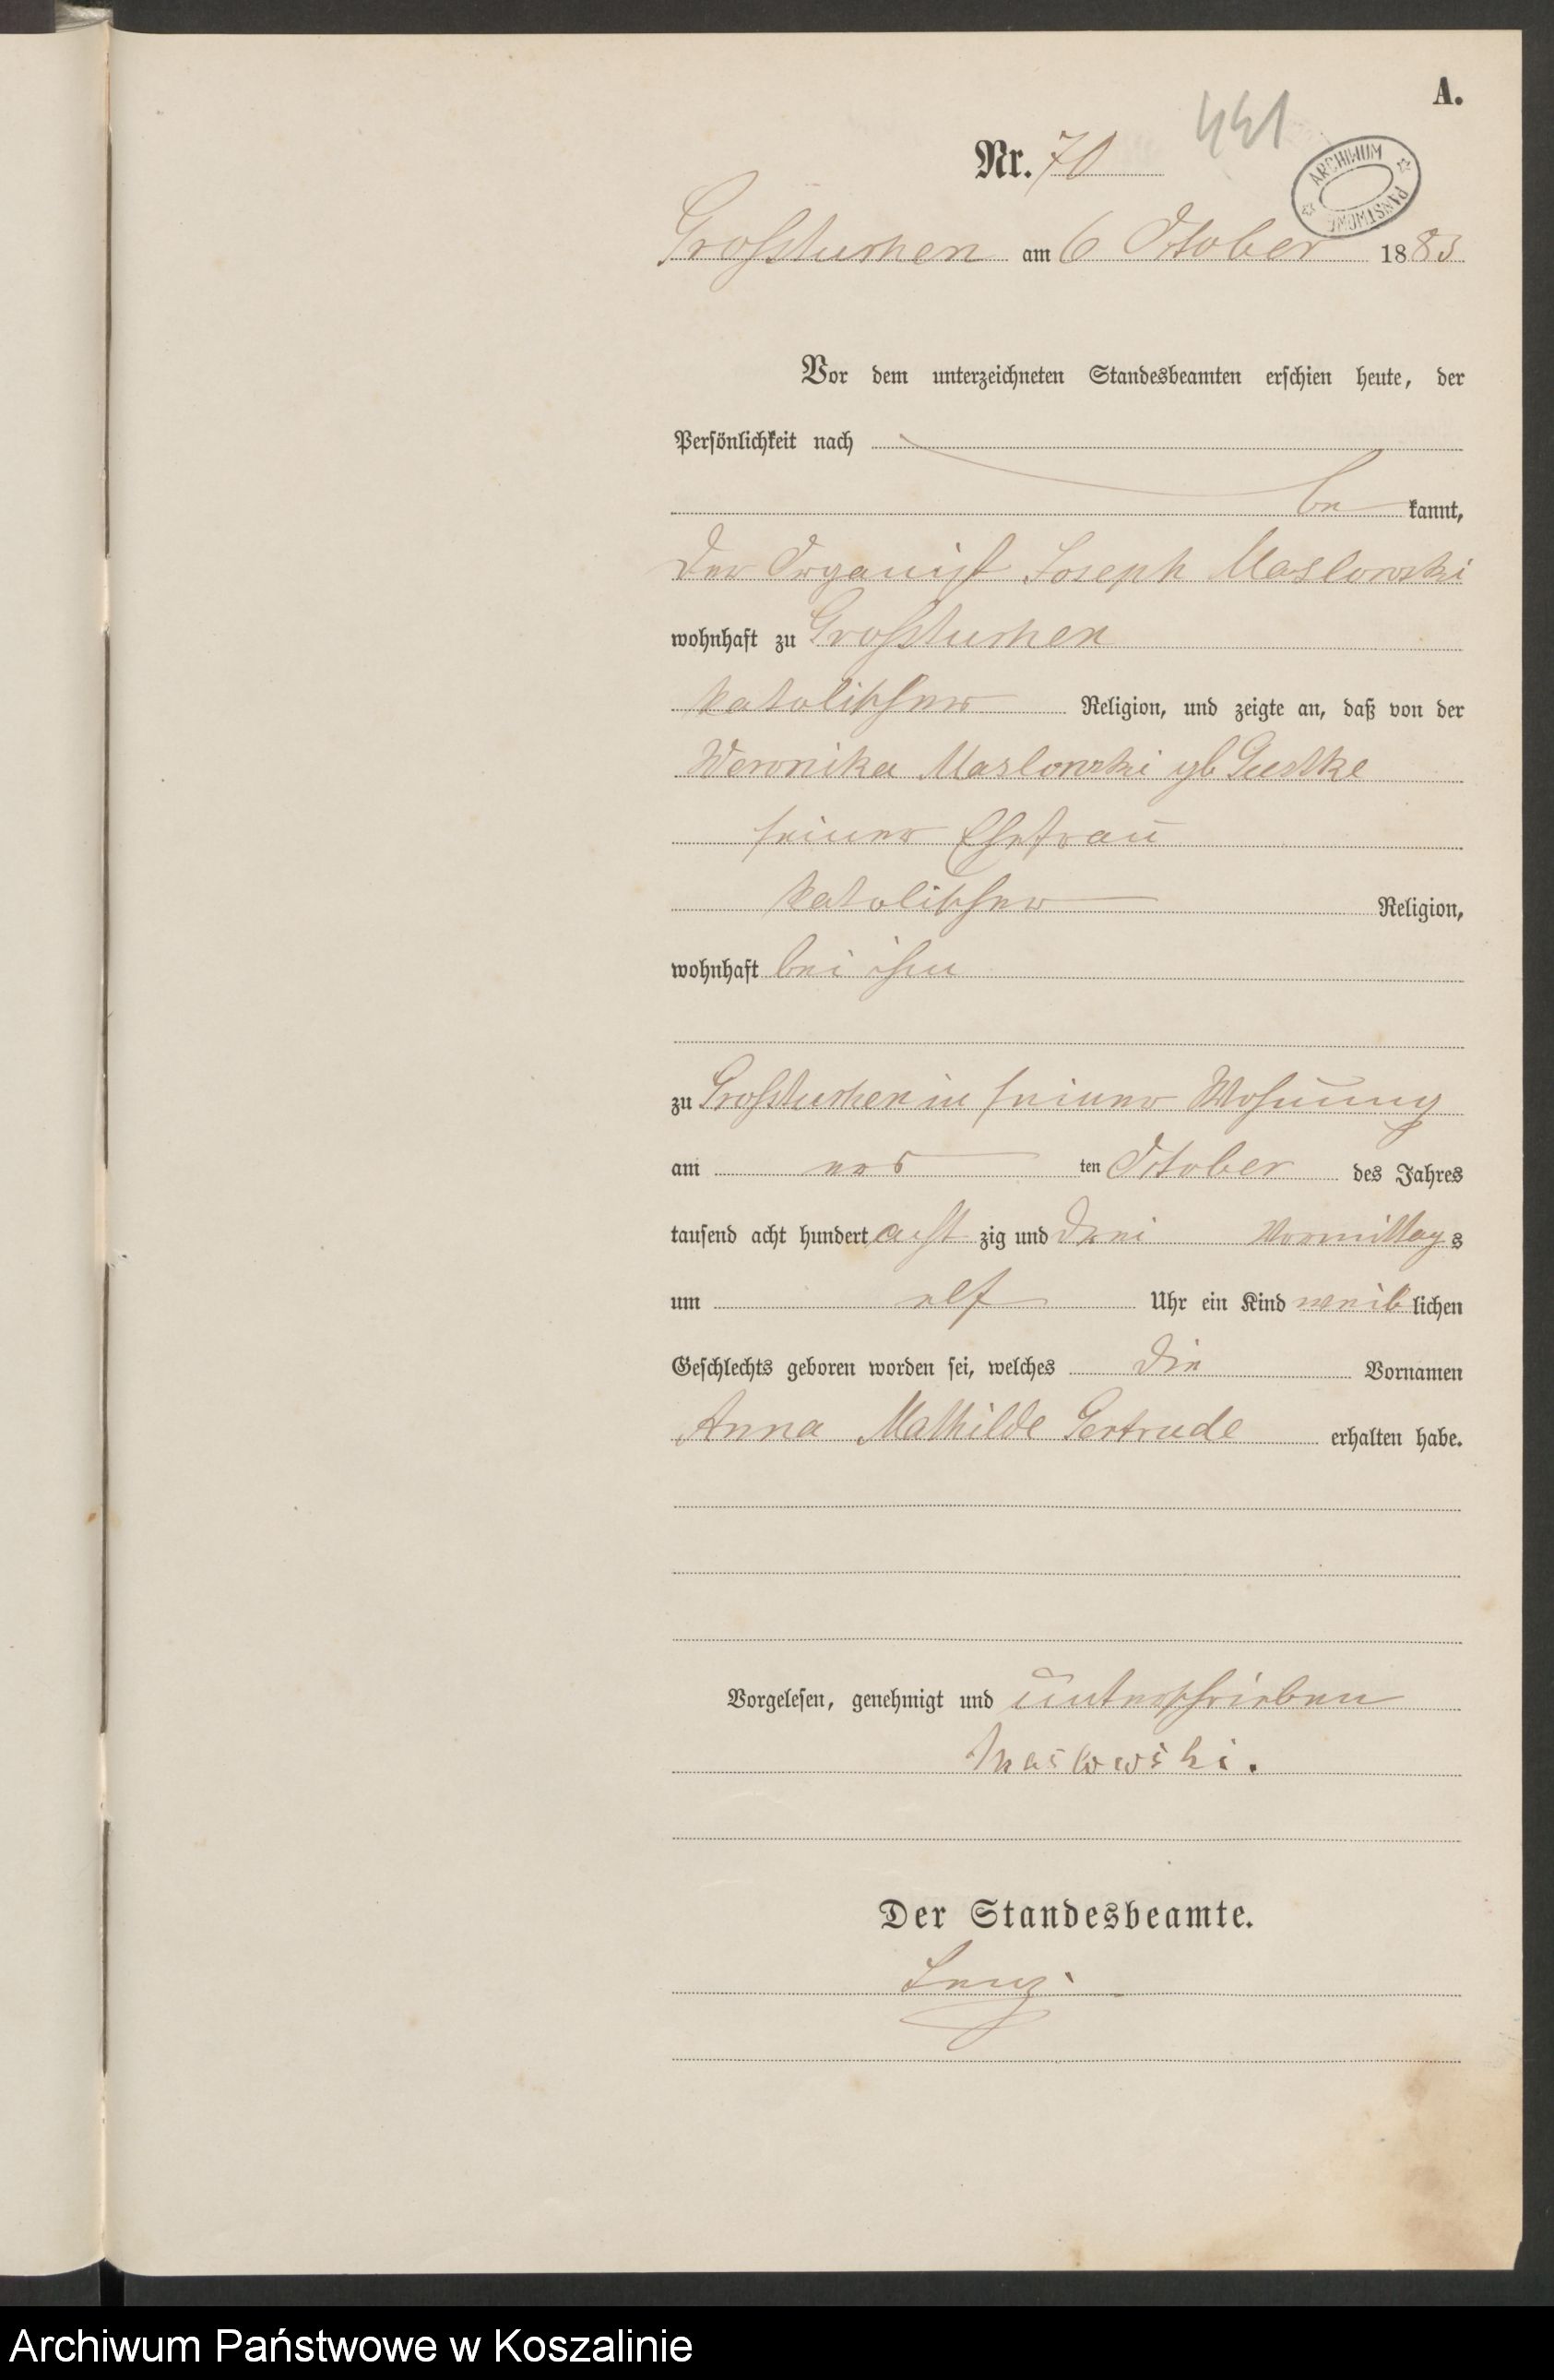 A.
441
Nr. 70
ARCHIWUM PAŃSTWOWE
Großtuchen am 6 October 1883
Vor dem unterzeichneten Standesbeamten erschien heute, der
Persönlichkeit nach
be kannt,
der Organist Joseph Maslowski
wohnhaft zu Großtuchen
katolischer Religion, und zeigte an, daß von der
Weronika Maslowski gb
seiner Ehefrau
katolischer Religion,
wohnhaft bei ihm
zu Großtuchen in seiner Wohnung
am ersten October des Jahres
tausend acht hundert acht zig und drei Vormittags
um elf Uhr ein Kind weiblichen
Geschlechts geboren worden sei, welches die Vornamen
Anna Mathilde Gertrude erhalten habe.
Vorgelesen, genehmigt und unterschrieben
Maslowski.
Der Standesbeamte.
Archiwum Państwowe w Koszalinie